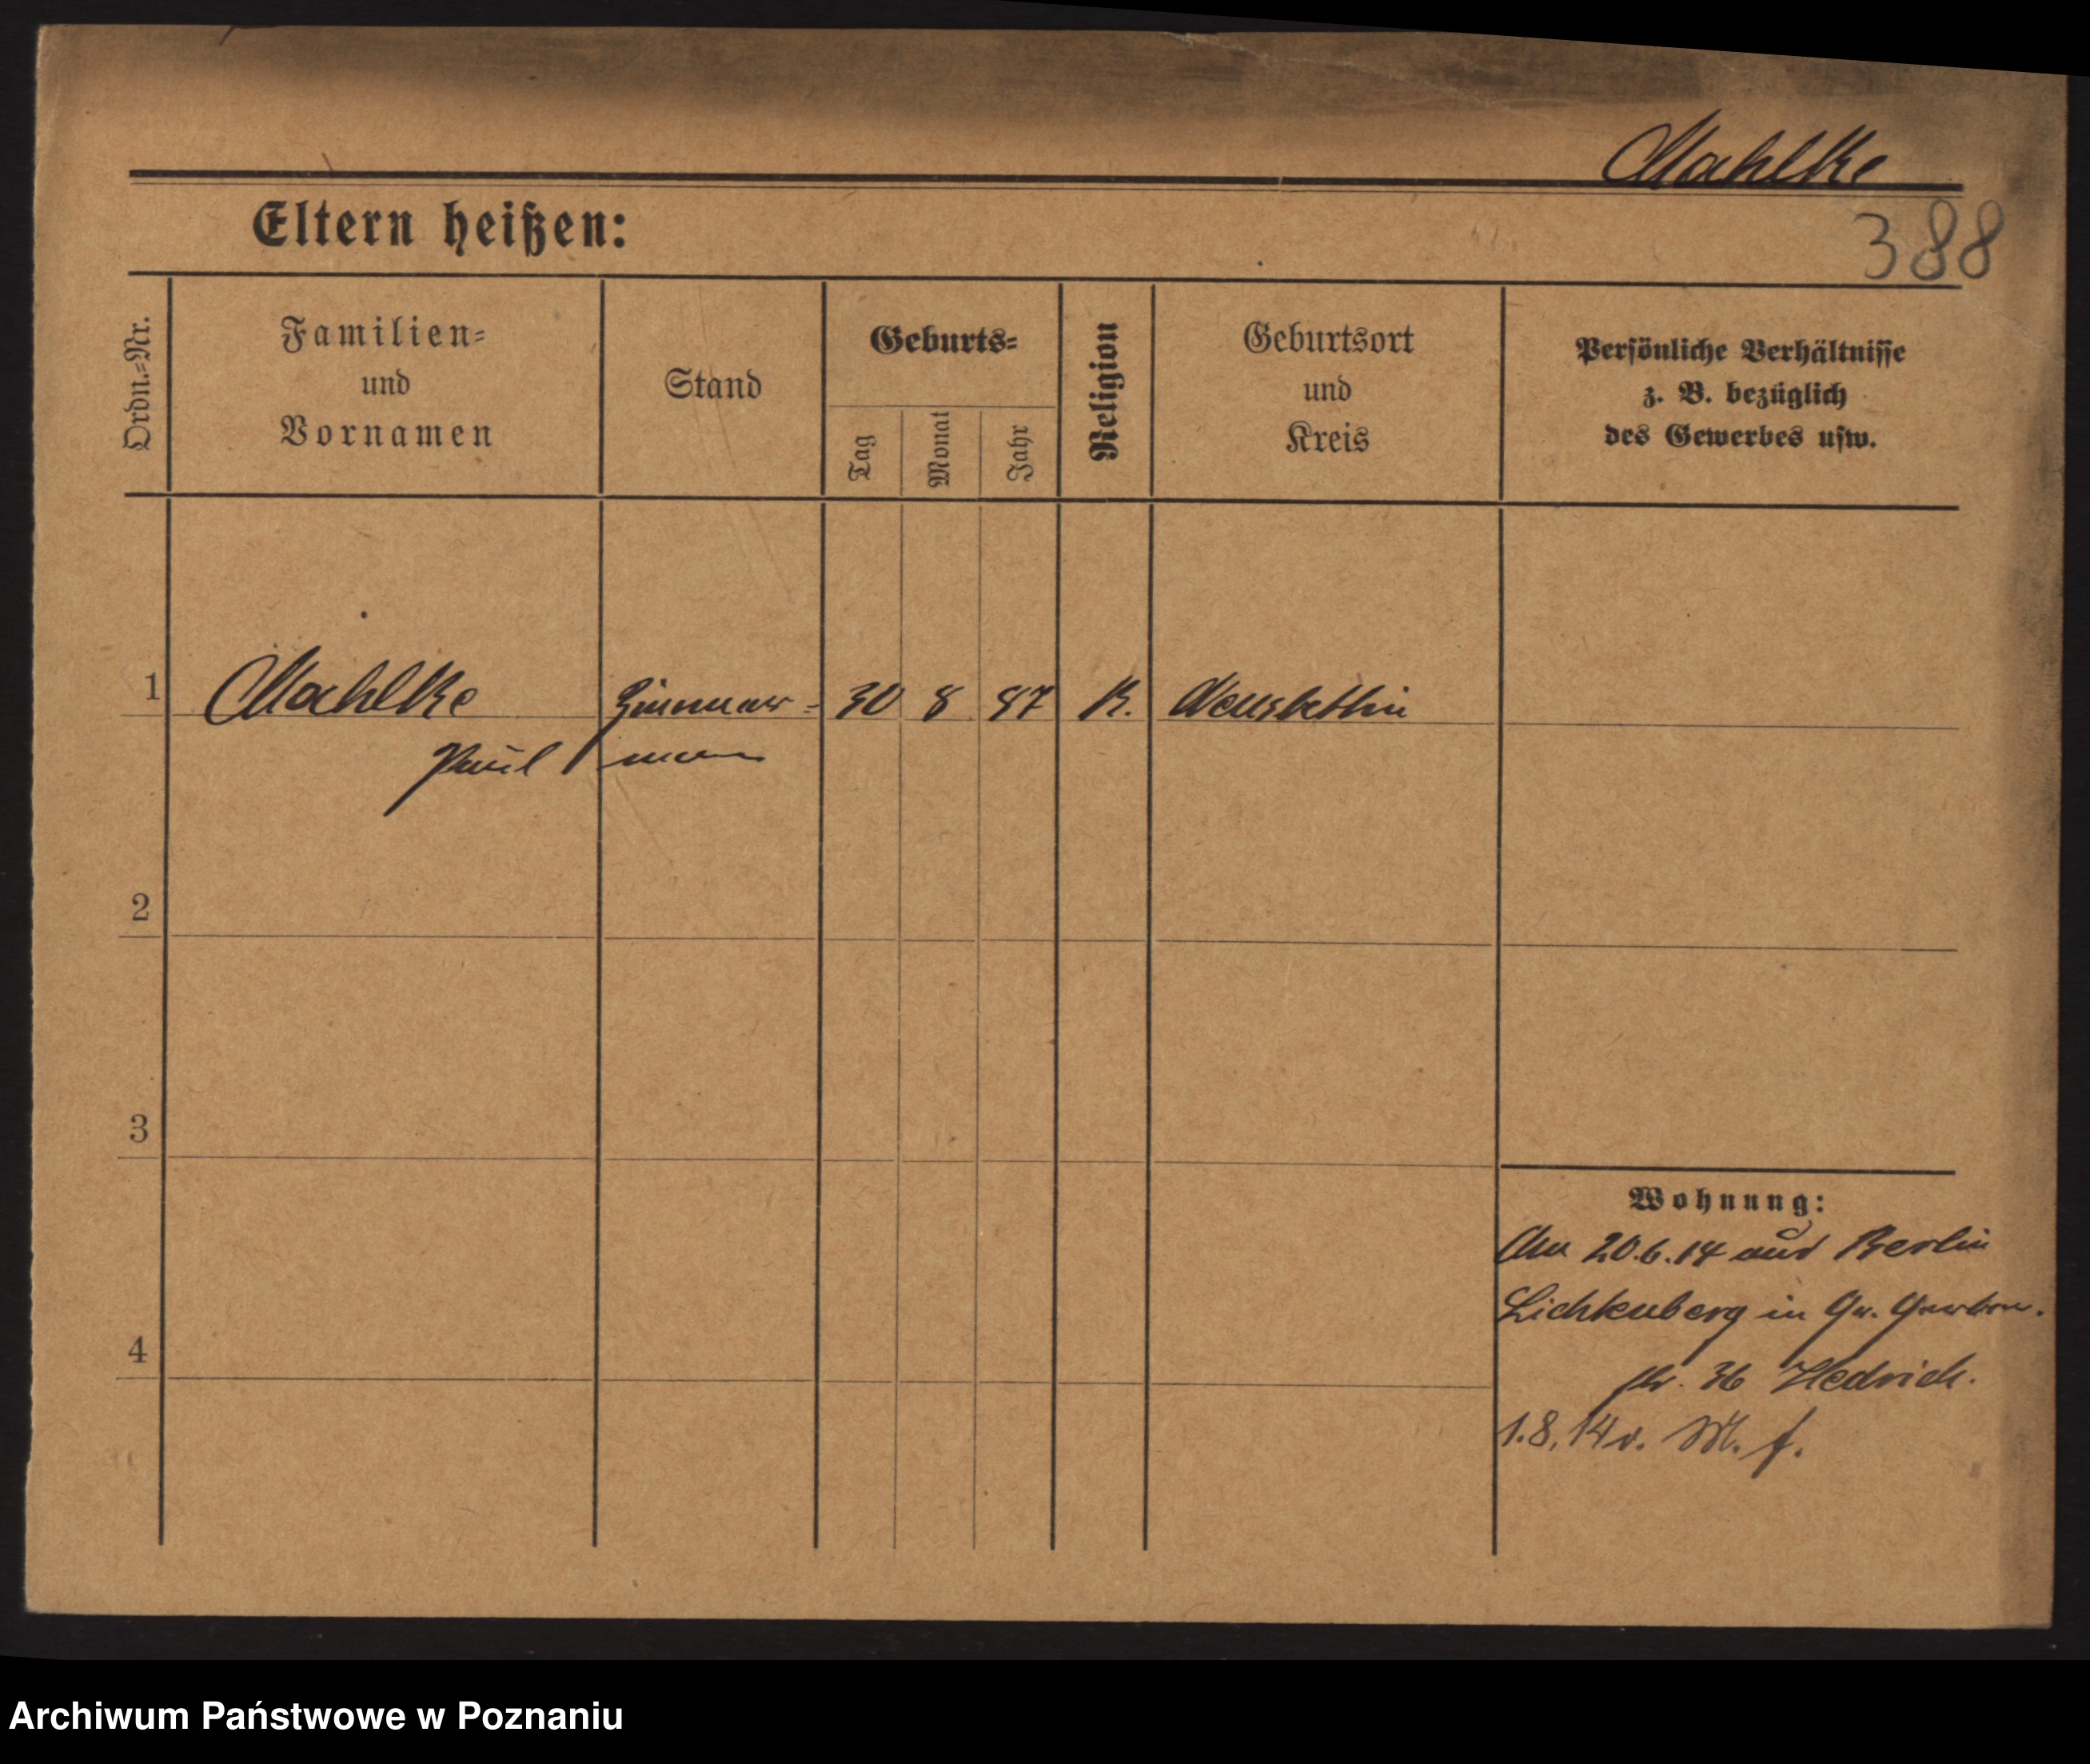 Mahlke
388
Eltern heißen:
Ordn.=Nr.
Familien=
und
Vornamen
Stand
Geburts=
Tag
Monat
Jahr
Religion
Geburtsort
und
Kreis
Persönliche Verhältnisse
z. B. bezüglich
des Gewerbes usw.
1 Mahlke Zimmer= 30 8 87 K. Neustettin
Paul mann
2
3
4
Wohnung:
20.6.14 aus Berlin
Lichtenberg in
36 Hedrich.
1.8.14 v. M. f.
Archiwum Państwowe w Poznaniu